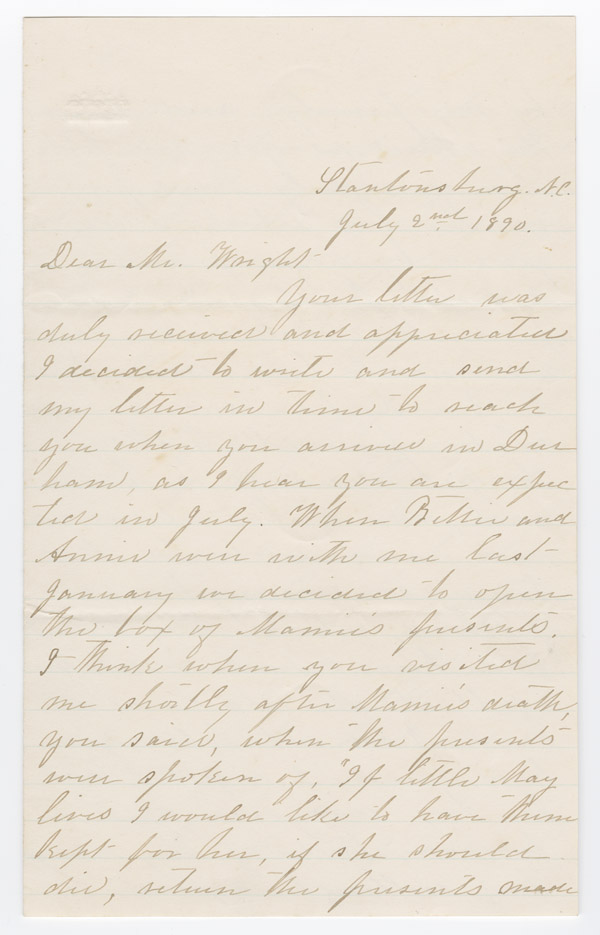 Stantonsburg. N.C.
July 2nd. 1890.
Dear Mr. Wright
Your letter was
duly received and appreciated
I decided to write and send
my letter in time to reach
you when you arrived in Dur
ham, as I hear you are expec
ted in July. When Bettie and
Annie were with me last
January we decided to open
the box of Mamie's presents.
I think when you visited
me shortly after Mamie's death,
you said, when the presents
were spoken of, "If little May
lives I would like to have them
kept for her, if she should
die, return the presents made